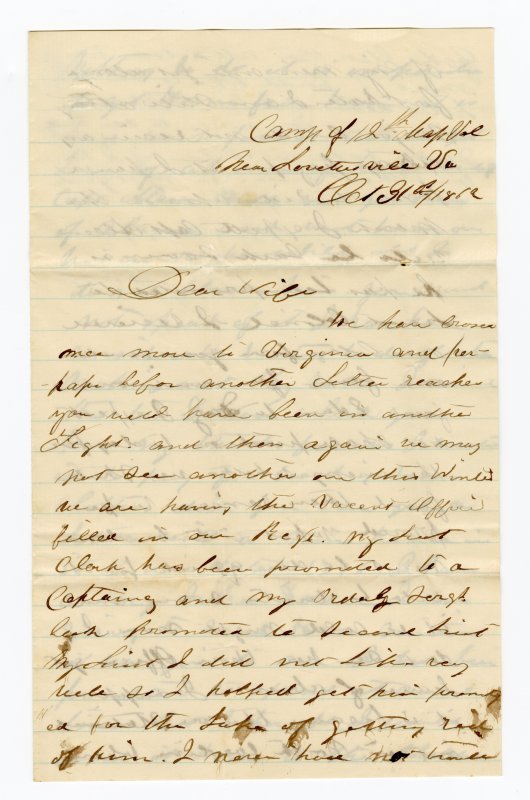 Camp of 12th Mass Vol
Near Lovettsville Va
Oct 31st/1862
Dear Wife
We have cross
once more to Virginia and per-
-paps befor another Letter reaches
you will have been in another
Fight. and then again we may
not see another one this Winter
we are having the Vacent Office
filled in our Regt. my Leut
Clark has been promoted to a
Captaincy and my Ordely Sergt.
Cook promoted to Second Leut
My Leiut I did not Like very
well so I helped get him promot
ed for the Sake of getting red
of him. I never have not